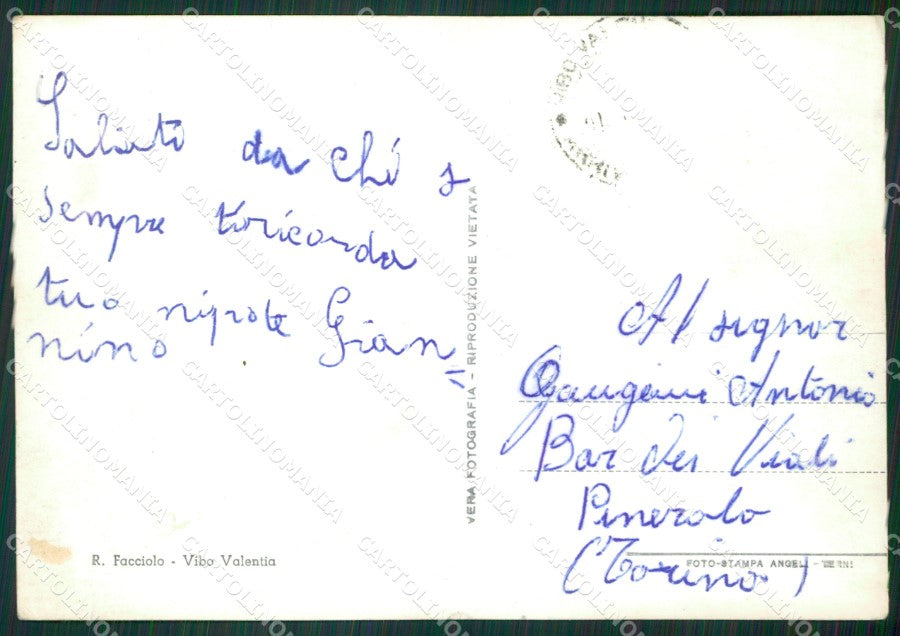 Saluti da chi s
sempre ti ricorda
tuo nipote Gian=
nino
R. Facciolo - Vibo Valentia
VERA FOTOGRAFIA - RIPRODUZIONE VIETATA
VIBO VA
Al signor
Antonio
Bar dei Viali
Pinerolo
(Torino)
FOTO-STAMPA ANGELI - TERNI
CARTOLINOMANIA